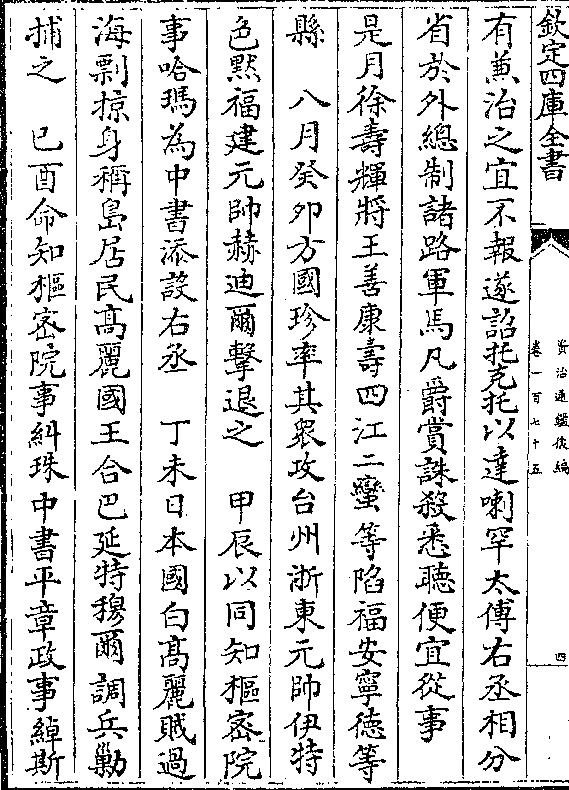 欽定四庫全書
資治通鑑後編
卷一百七十五
四
有兼治之宜不報遂詔托克托以達喇罕太傅右丞相分
省於外總制諸路軍馬凡爵賞誅殺悉聽便宜從事
是月徐壽輝將王善康壽四江二蠻等陷福安寧德等
縣　八月癸卯方國珍率其衆攻台州浙東元帥伊特
色黙福建元帥赫迪爾擊退之　甲辰以同知樞密院
事哈瑪為中書添設右丞　丁未日本國白髙麗賊過
海剽掠身稱島居民髙麗國王合巴延特穆爾調兵勦
捕之　已酉命知樞密院事糾珠中書平章政事綽斯